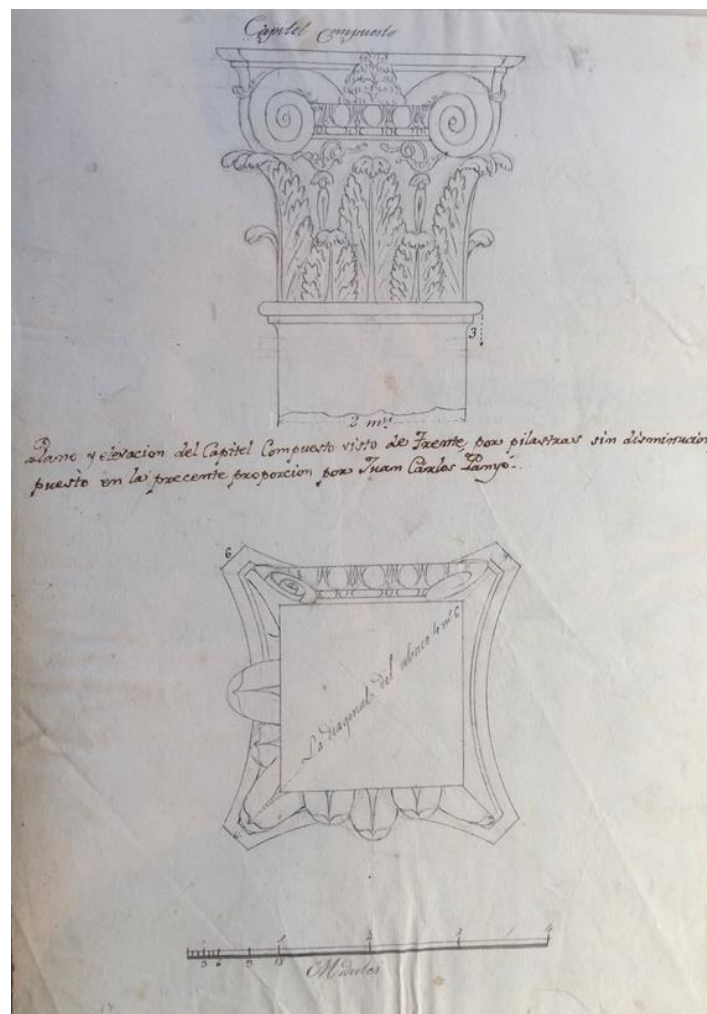 Capitel Compuesto
3
2 ms
Plano y elevacion del Capitel Compuesto visto de Frente, por pilastras sin disminucion
puesto en la precente proporcion por Juan Carlos Panyó.
6
La diagonal del abaco 4 ms 6
1 2 3 4
3 6 9 18
Modulos